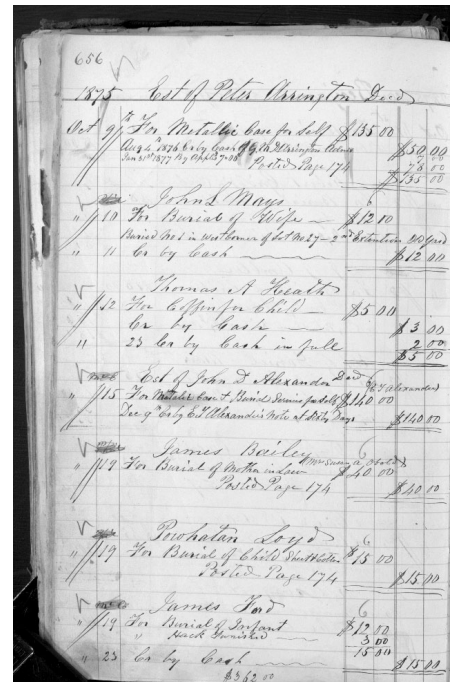 656
1875 Est of Peter Arrington Decd
Oct 9th For Metallic Case for Self $135 00
Aug 4" 1876 Cr by Cash of Arrington $50 00
Jan 31st 1877 By 7 00
Posted Page 174 78 00
$135 00
John L Mays
" 10 For Burial of Wife $12 00
Buried No 1 in West Corner of Lot No 27 - 2nd Extention
" 11 Cr by Cash $12 00
Thomas A Heath
" 12 For Coffin for Child $5 00
Cr by Cash $3 00
" 23 Cr by Cash in full 2 00
$5 00
Est of John D Alexander Decd
" 15 For Metalic Case & Burial Service for Self $140 00
Dec 9" Cr by Alexander's Note at Sixty Days $140 00
James Bailey
" 19 For Burial of Mother in Law $40 00
Posted Page 174 $40 00
Powhatan Loyd
" 19 For Burial of Child $15 00
Posted Page 174 $15 00
James Ford
" 19 For Burial of Infant $12 00
" Hack Furnished 3 00
15 00
" 23 Cr by Cash $15 00
$362 00